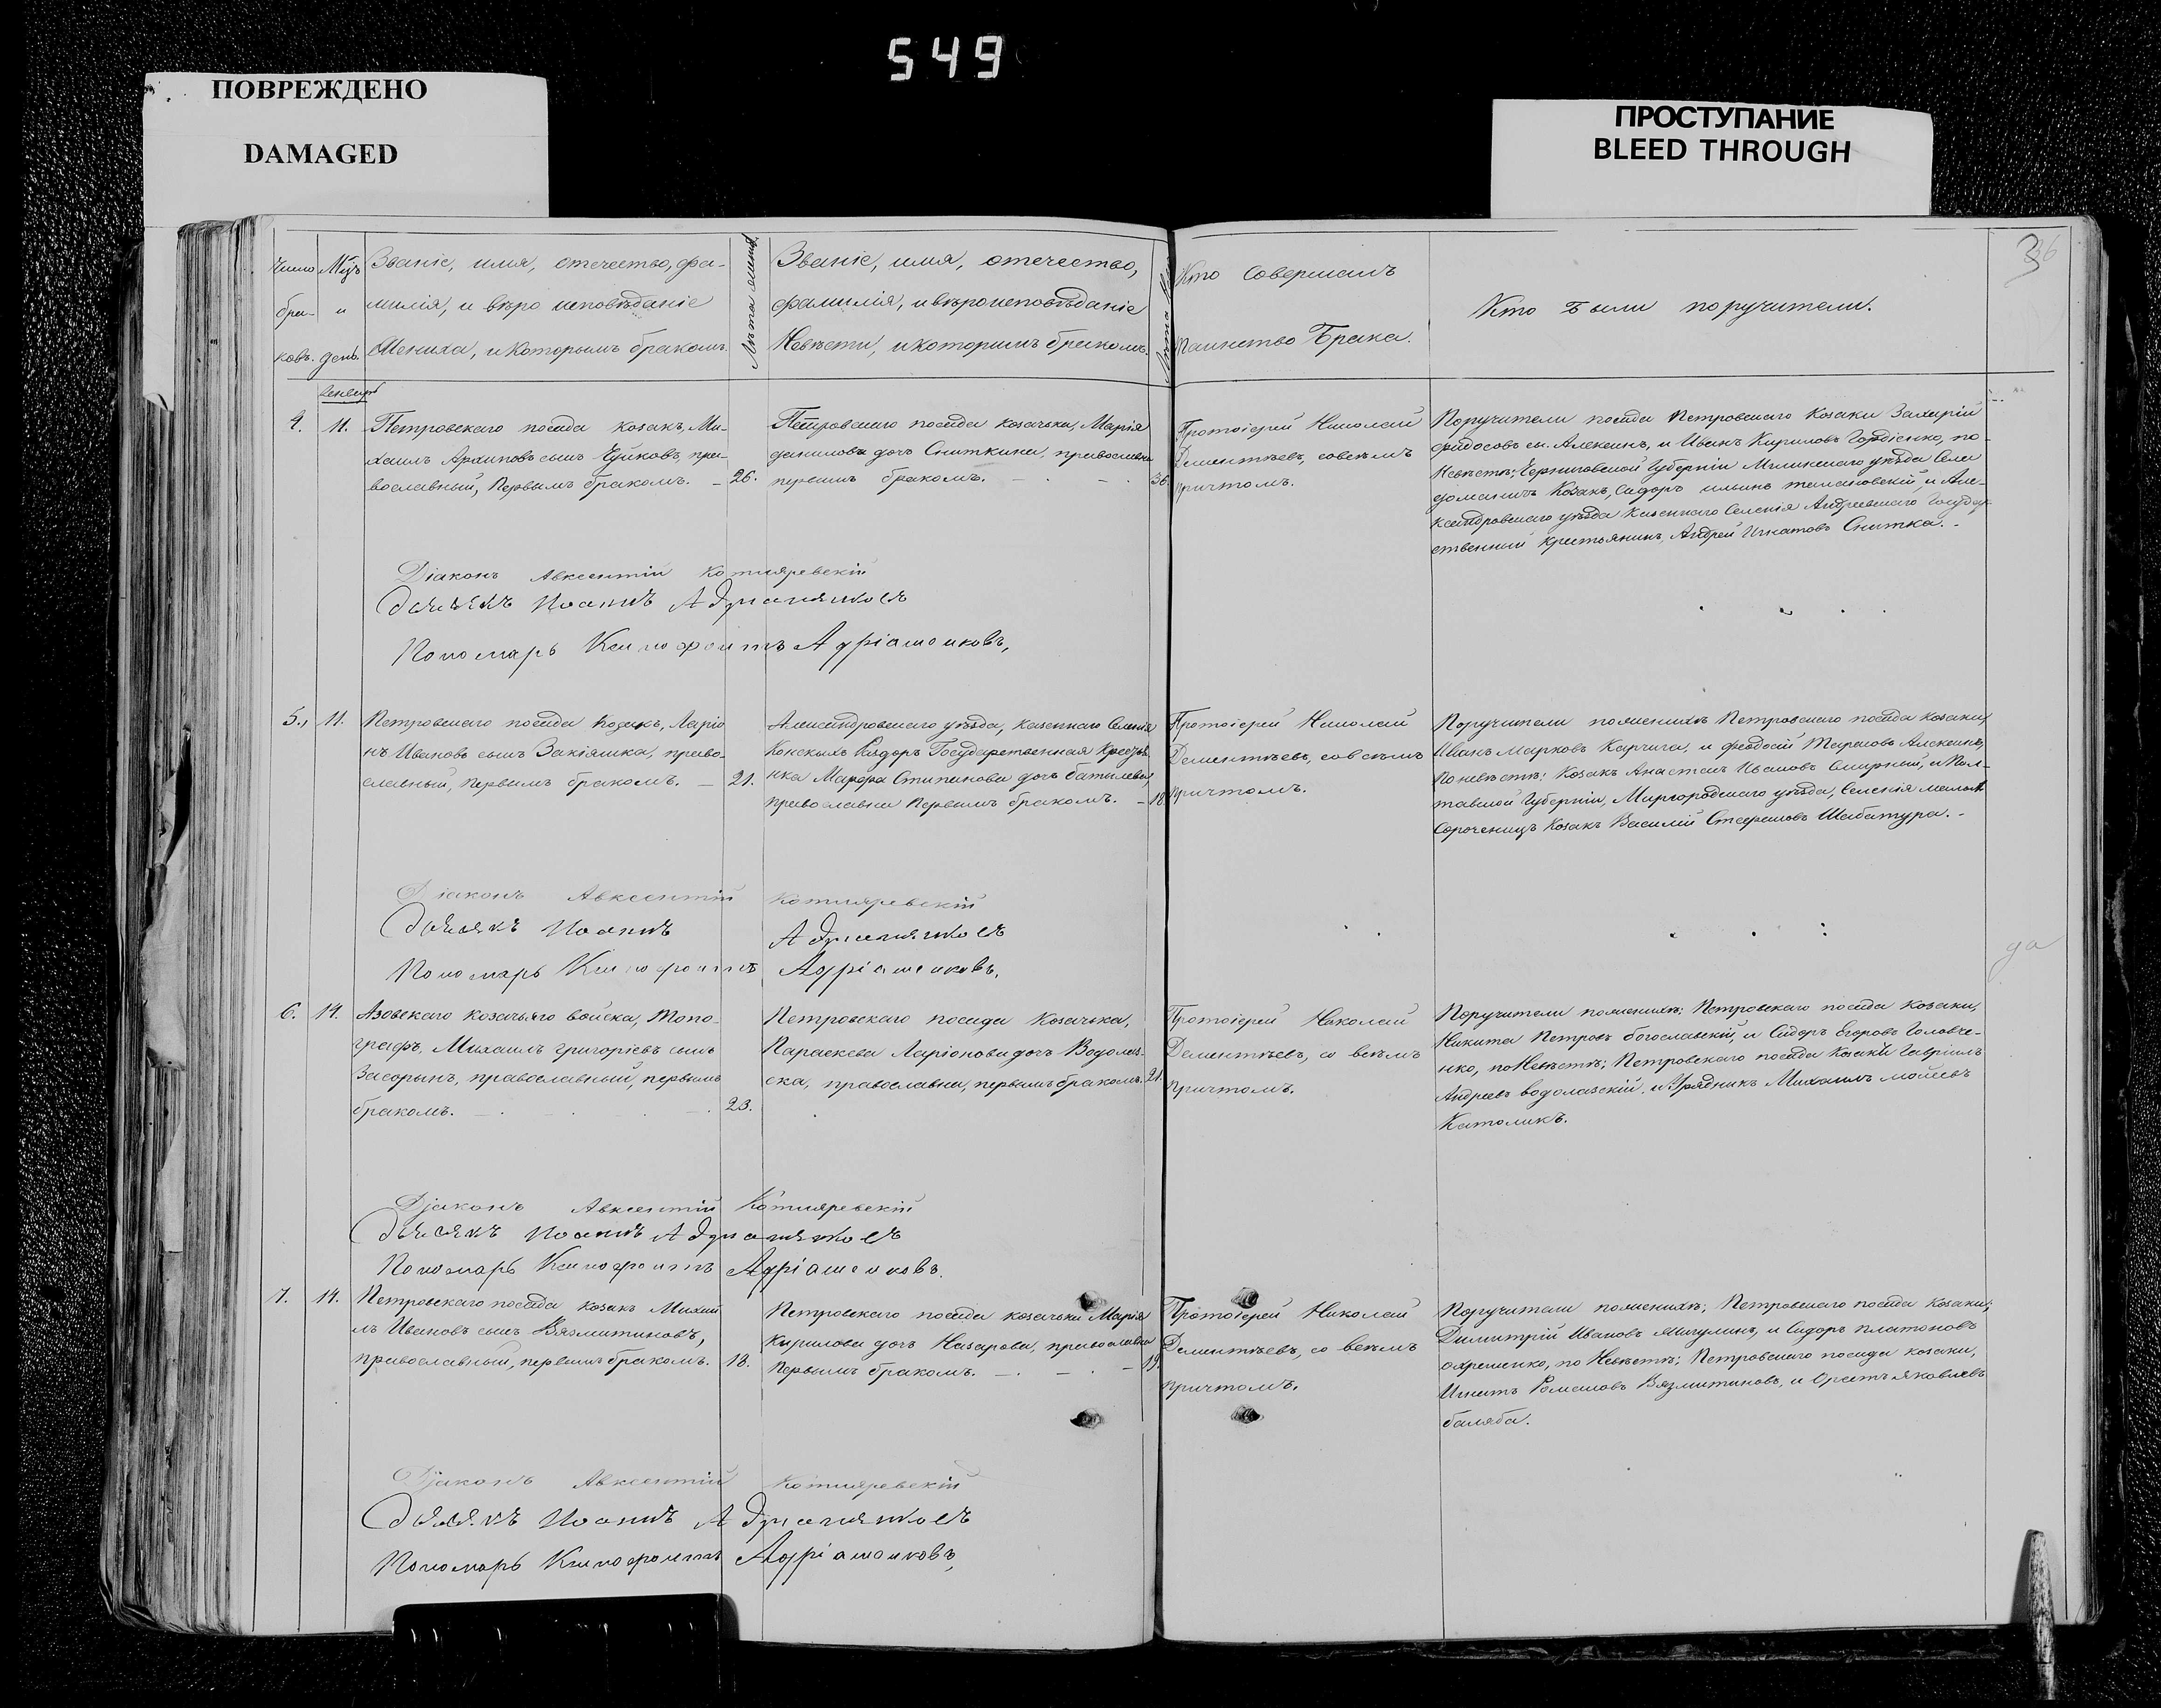 549
ПОВРЕЖДЕНО
DAMAGED
ПРОСТУПАНИЕ
BLEED THROUGH
36
Число бра- ковъ.
Мцъ и день.
Званіе, имя, отечество, фа-
милія, и вѣро исповѣданіе
Жениха, и которымъ бракомъ.
Лѣта жениха
Званіе, имя, отечество,
фамилія, и вѣроисповѣданіе
Невѣсты, и которымъ бракомъ.
Кто совершалъ
таинство Брака.
Кто были поручители.
Январь
4. 11.
Петровскаго посада козакъ, Ми-
хаилъ Архиповъ сынъ Чуйковъ, пра-
вославный, первымъ бракомъ. – 26.
Петровскаго посада козачька, Марія
данилова дочь Сниткина, православна
первымъ бракомъ. 36.
Протоіерей Николай
Дементьевъ, совсѣмъ
причтомъ.
Поручители посада Петровскаго Козаки Захарій
федосовъ сы. Алексинъ, и Иванъ Кириловъ Гордіенко, по-
Невѣстѣ; Черниговской Губерніи уѣзда Села
Козакъ, Сидоръ ильинъ и Але-
ксандровскаго уѣзда Казеннаго Селенія Андреевскаго Государ-
ственный Крестьянинъ, Андрей Игнатовъ Снитка. -
Діаконъ Авксентій Котляревскій
Дьячекъ Иоаннъ Адриановъ
Пономарь Ксинофонтъ Адріашенковъ,
5., 11.
Петровскаго посада козакъ, Ларіо
нъ Ивановъ сынъ Закіяшка, право-
славный, первымъ бракомъ. – 21.
Александровскаго уѣзда, казеннаго Селенія
Конскихъ Раздоръ Государственная Крестья-
нка Марфа Стипанова дочь батылева,
православна первымъ бракомъ. – 18.
Протоіерей Николай
Дементьевъ, совсѣмъ
причтомъ.
Поручители пожениихѣ Петровскаго посада козаки,
Иванъ Марковъ Карчига, и феодосій Тарасовъ Алексинъ,
Поневѣстѣ: Козакъ Анастасъ Ивановъ Смирный, и Пол-
тавской Губерніи, Миргородскаго уѣзда, Селенія малыхъ
Сорочинцъ Козакъ Василій Стефановъ Шабатура. -
Діаконъ Авксентій Котляревскій
Дьячекъ Иоаннъ
Пономарь Ксинофонтъ Адріашенковъ.
да
6. 14.
Азовскаго козачьяго войска, Топо-
графъ, Михаилъ григоріевъ сынъ
Засорынъ, православный, первымъ
бракомъ. 23.
Петровскаго посада Козачька,
Параскева Ларіонова дочь Водолаз-
ска, православна, первымъ бракомъ. 21.
Протоіерей Николай
Дементьевъ, со всѣмъ
причтомъ.
Поручители поженихѣ; Петровскаго посада Козаки,
Никита Петровъ богославскій, и Сидоръ Егоровъ Головче-
нко, по Невѣстѣ; Петровскаго посада Козаки Гавріилъ
Андреевъ водолазскій, и Урядникъ Михаилъ мойсеевъ
Католикъ.
Діаконъ Авксентій Котляревскій
Дьячекъ Иоаннъ
Пономарь Ксинофонтъ Адріашенковъ.
7. 14.
Петровскаго посада козакъ Михаи
лъ Ивановъ сынъ Вязмитиновъ,
православный, первымъ бракомъ. 18.
Петровскаго посада козачька Марія
Кирилова дочь Назарова, православна
первымъ бракомъ. – 19.
Протоіерей Николай
Дементьевъ, со всѣмъ
причтомъ.
Поручители поженихѣ; Петровскаго посада Козаки;
Димитрій Ивановъ Мигулинъ, и Сидоръ платоновъ
охрешенко, по Невѣстѣ; Петровскаго посада козаки,
Игнатъ Романовъ Вязмитиновъ, и Орестъ яковлевъ
баляба.
Діаконъ Авксентій Котляревскій
Дьячекъ Иоаннъ
Пономарь Ксинофонтъ Адріашенковъ,